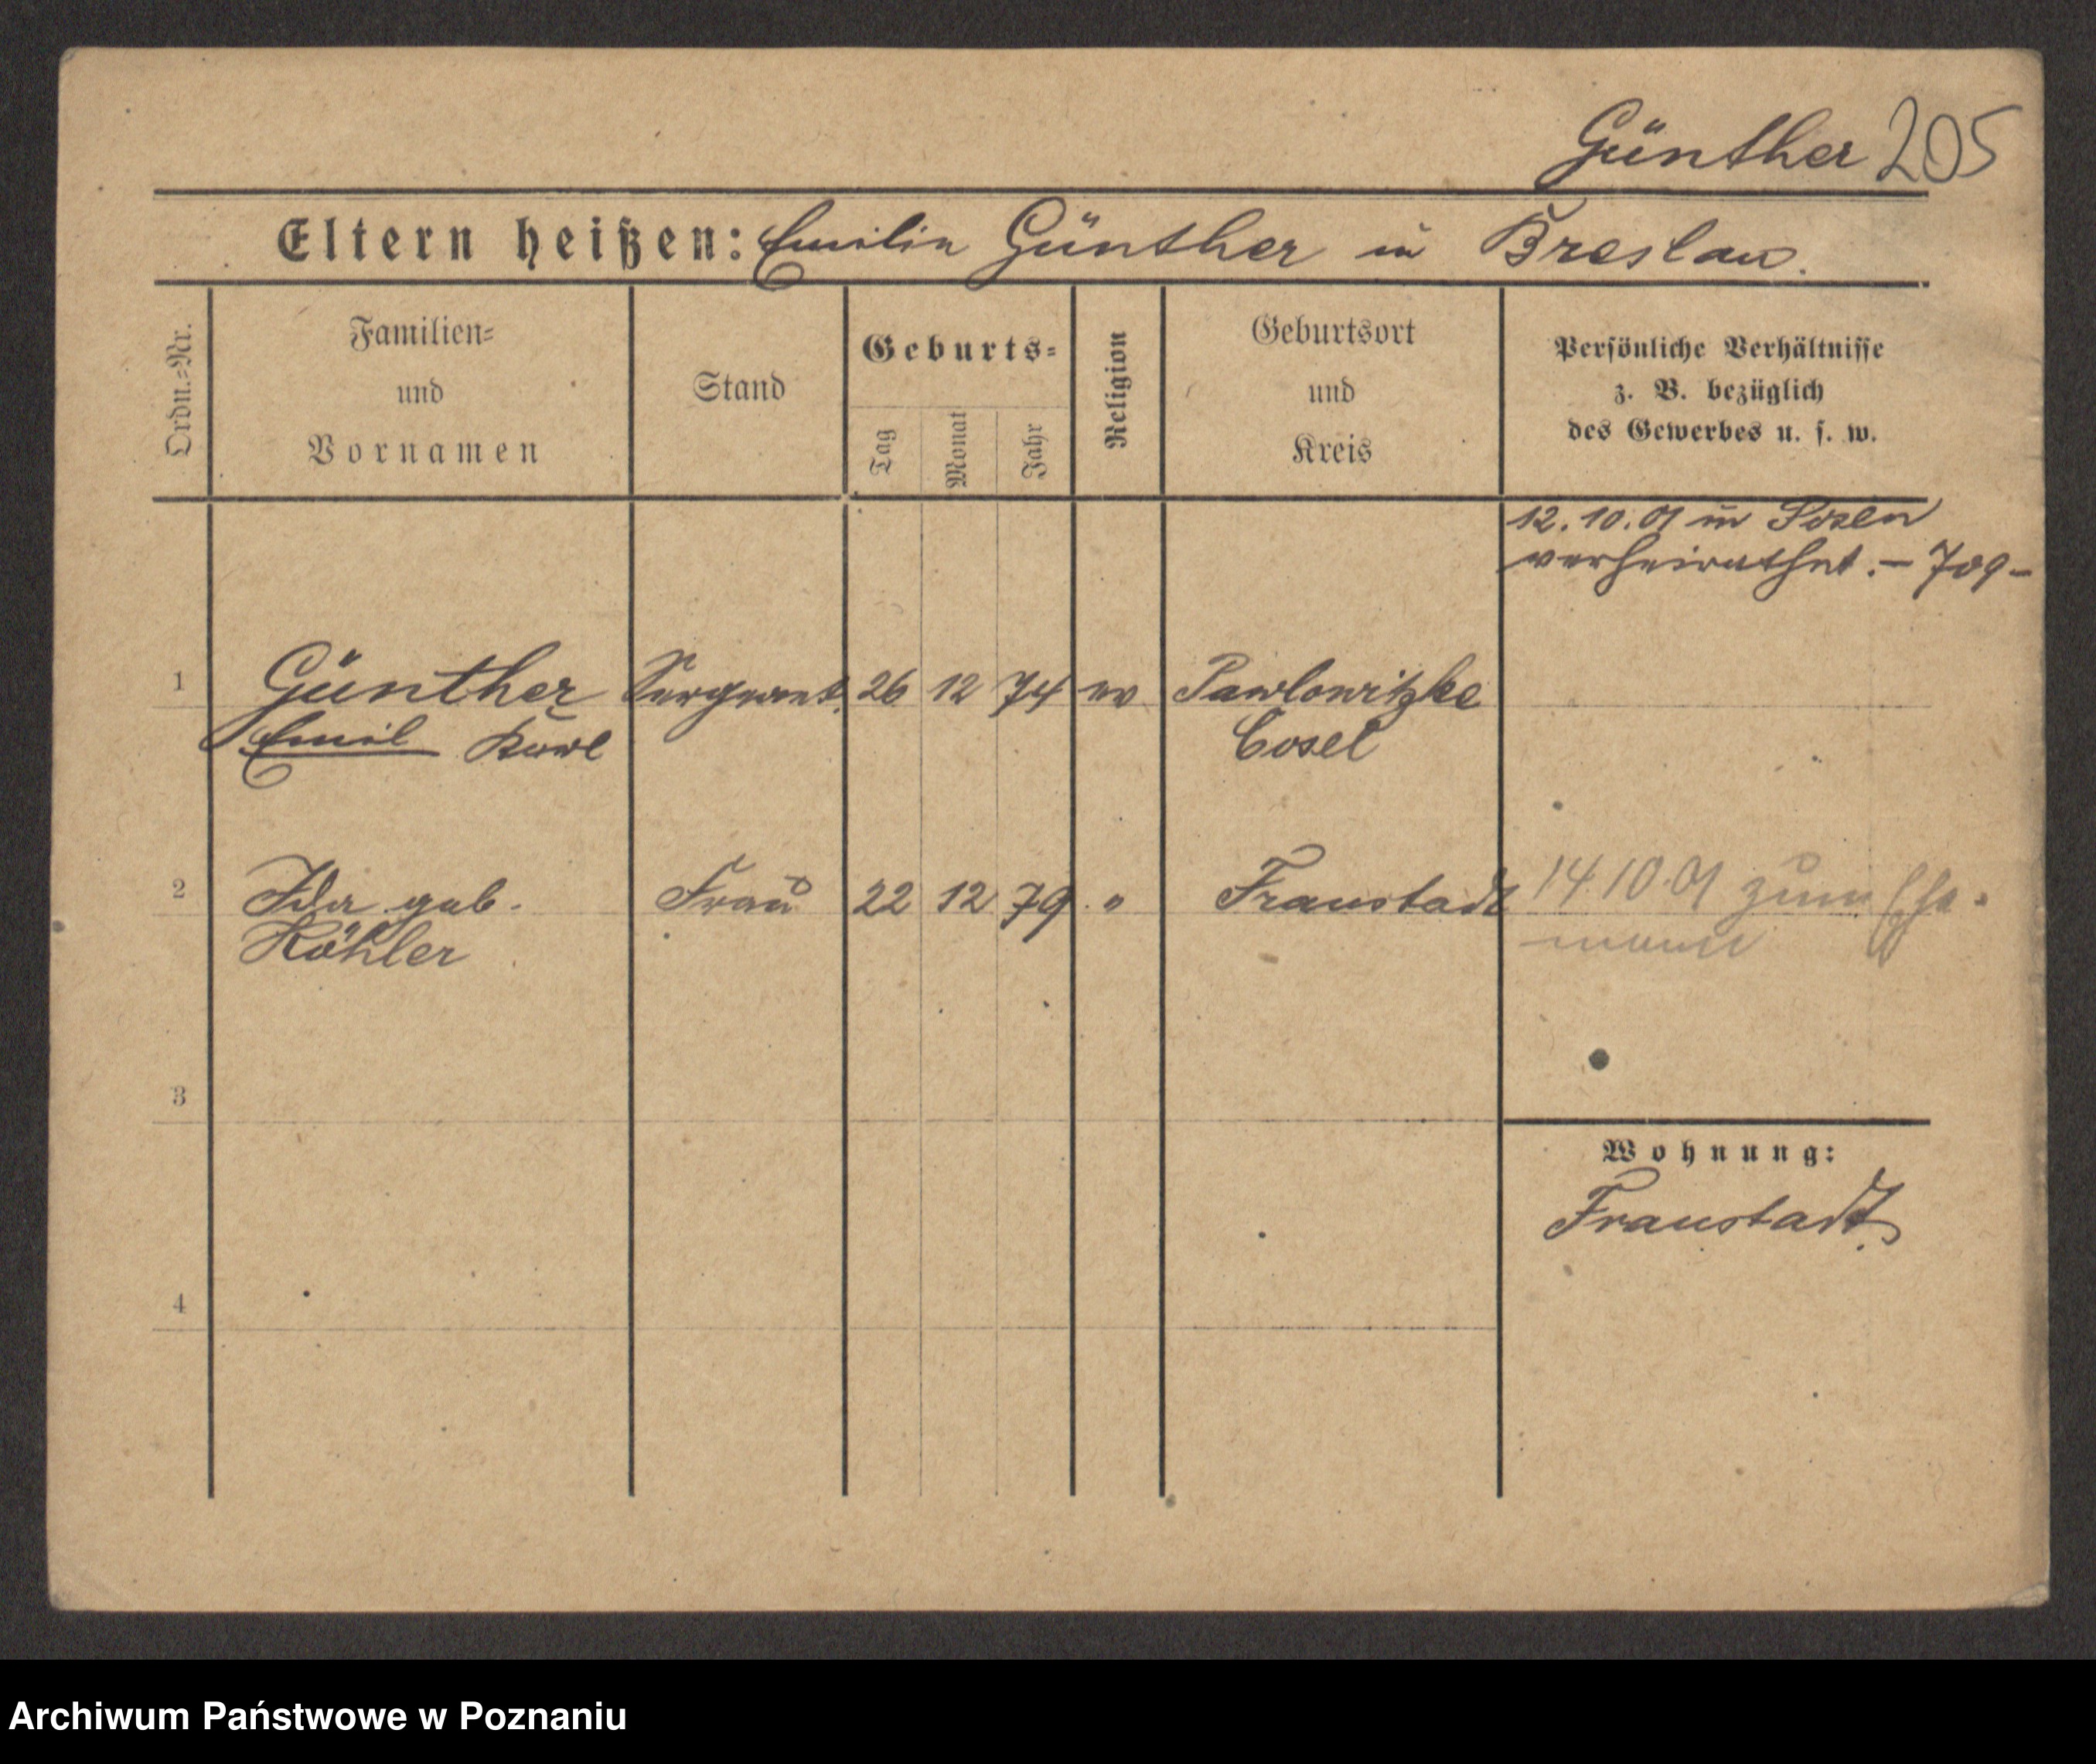 Günther 205
Eltern heißen: Emilie Günther in Breslau.
Ordn.=Nr.
Familien=
und
Vornamen
Stand
Geburts=
Tag
Monat
Jahr
Religion
Geburtsort
und
Kreis
Persönliche Verhältnisse
z. B. bezüglich
des Gewerbes u. s. w.
12.10.01 in Posen
verheirathet. – 709 –
1 Günther Sergeant. 26 12 74 ev Pawlowitzke
Emil Karl Cosel
2 Ida geb. Frau 22 12 79 " Fraustadt 14.10.01 zum Ehe-
Köhler mann
3
Wohnung:
Fraustadt
4
Archiwum Państwowe w Poznaniu